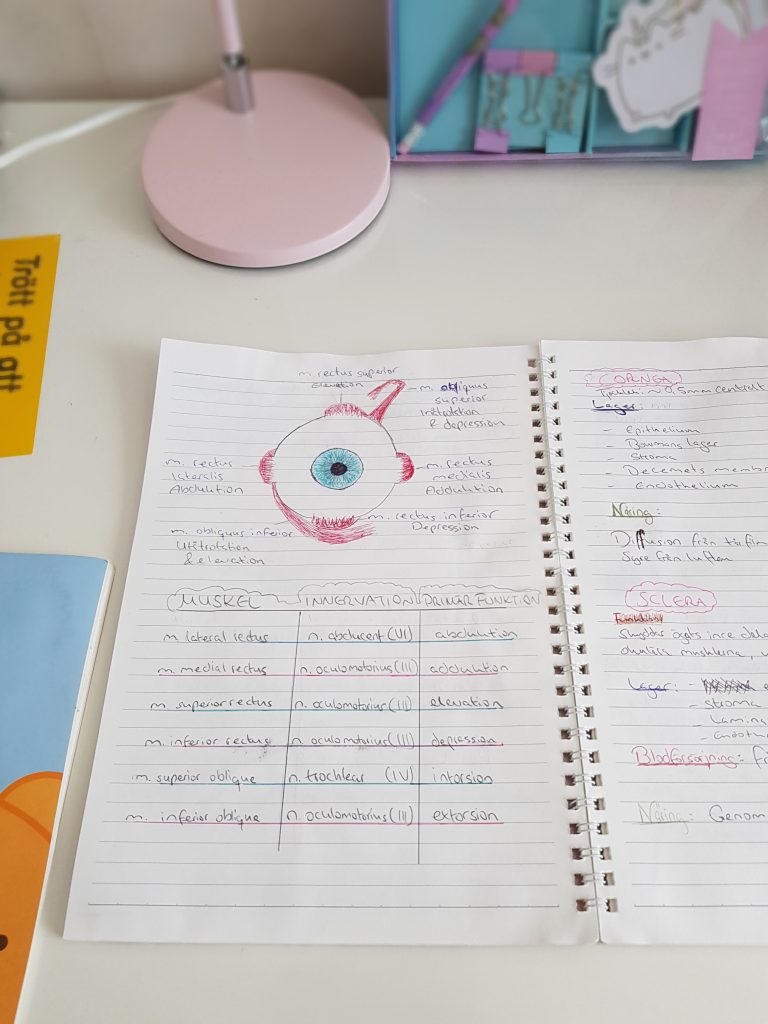 Trött på att
m. rectus superior
Elevation
m. obliquus
superior
Inåtrotation
& depression
m. rectus
lateralis
Abduktion
m. rectus
medialis
Adduktion
m. rectus inferior
Depression
m. obliquus inferior
Utåtrotation
& elevation
MUSKEL INNERVATION PRIMÄR FUNKTION
m. lateral rectus n. abducent (VI) abduktion
m. medial rectus n. oculomotorius (III) adduktion
m. superior rectus n. oculomotorius (III) elevation
m. inferior rectus n. oculomotorius (III) depression
m. superior oblique n. trochlear (IV) intorsion
m. inferior oblique n. oculomotorius (III) extorsion
~ 0,5mm centralt
Lager:
- Epithelium
- Bowmans lager
- Stroma
- Decemets membr
- Endothelium
Näring:
Diffusion från
Syre från luften
SCLERA
Funktion:
Skyddar ögats
Lager:
- Stroma
- Lamina
- Endoth
Blodförsörjning: Fr
Näring: Genom